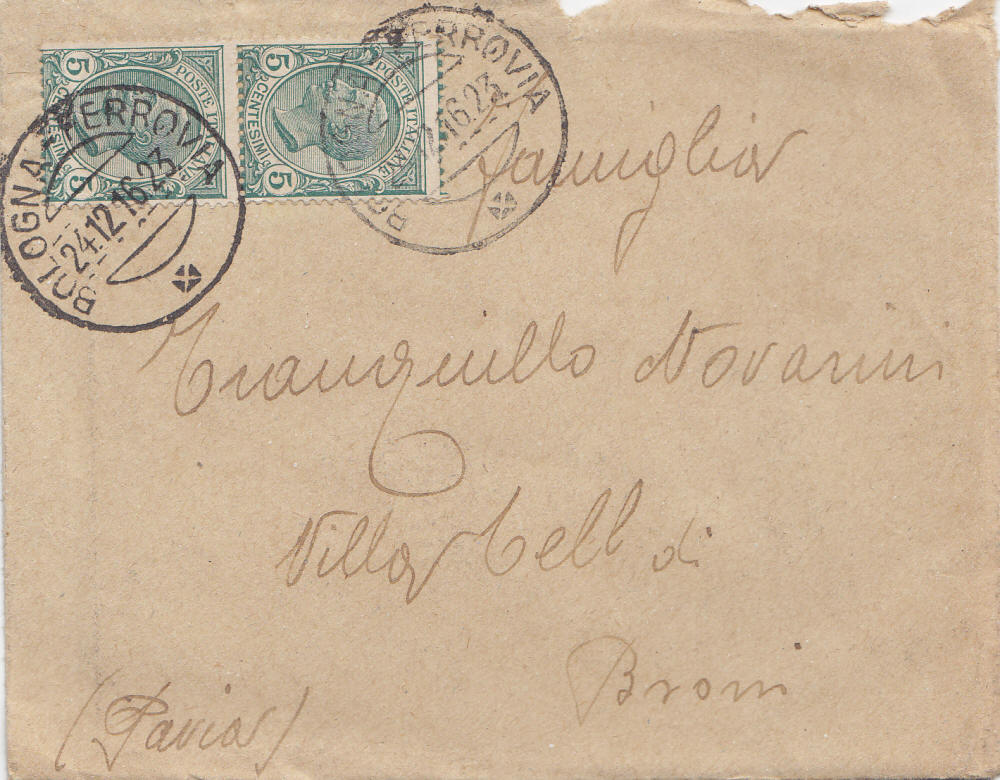 5 5 POSTE ITALIANE CENTESIMI
5 5 POSTE ITALIANE CENTESIMI
BOLOGNA FERROVIA
24.12.16.23
FERROVIA
16.23
famiglia
Tranquillo Novarini
Villa di
Broni
(Pavia)